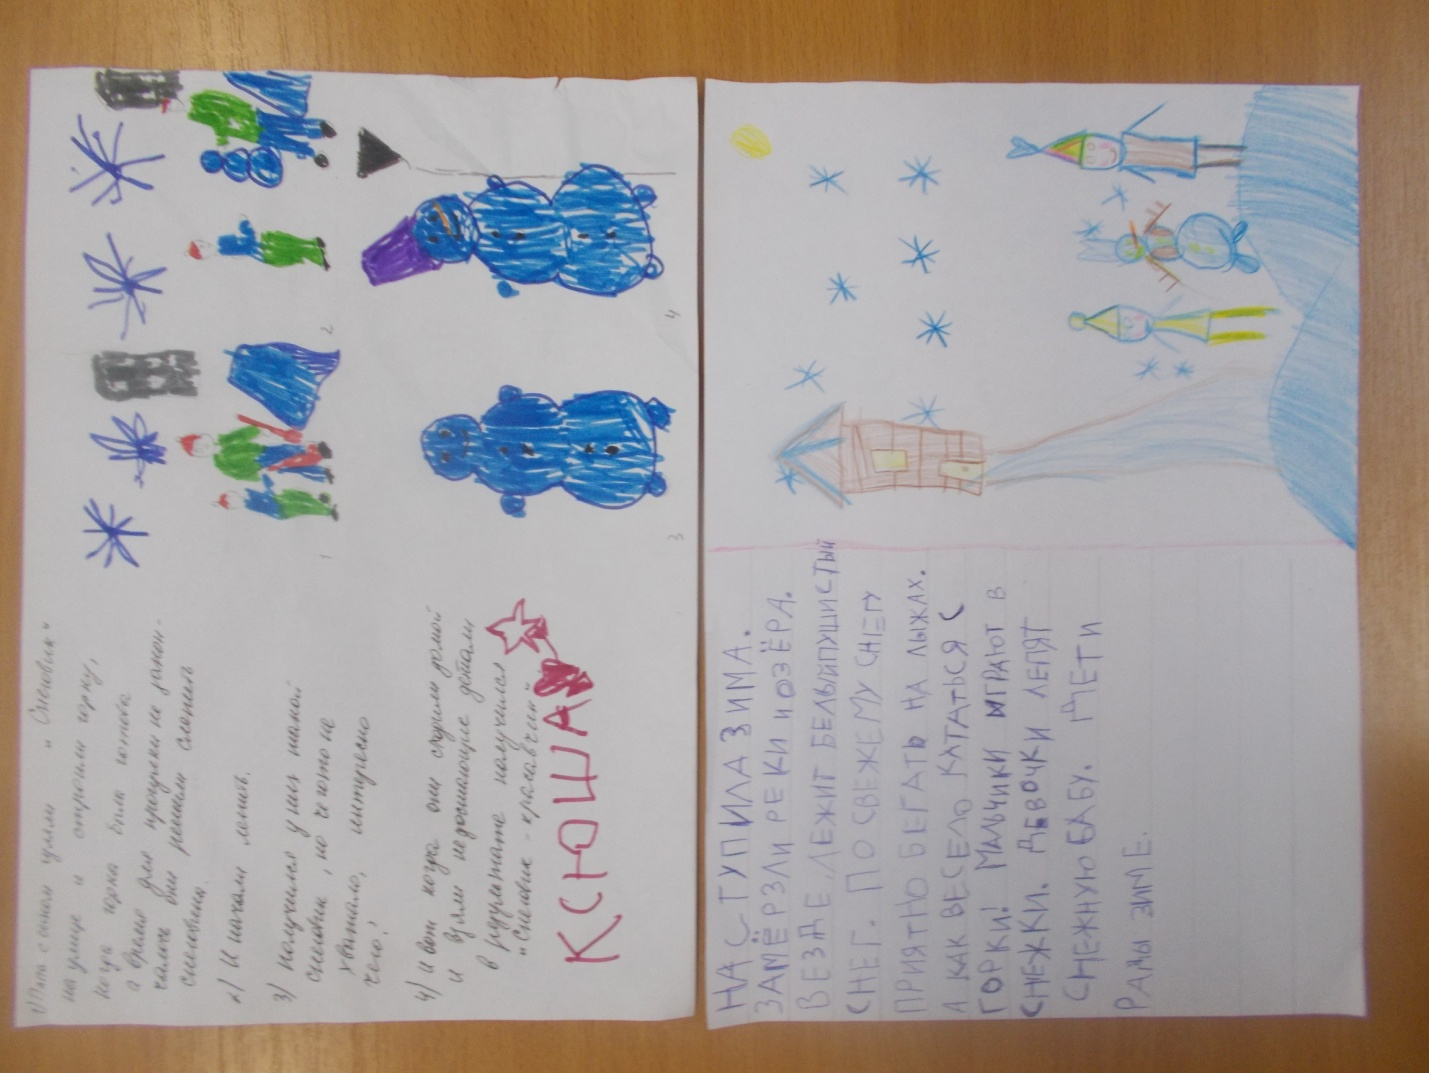 1) Папа с сыном гуляли "Снеговик"
на улице и строили горку,
когда горка была готова
а время для прогулки не закон-
чилось они решили слепить
снеговика.
2) И начали лепить.
3) Получился у них такой
снеговик, но чего-то не
хватало, интересно
чего?
4) И вот когда они сходили домой
и взяли недостающие детали
в результате получился
"Снеговик - красавчик"
КСЮША
1
2
3
4
НАСТУПИЛА ЗИМА.
ЗАМЁРЗЛИ РЕКИ И ОЗЁРА.
ВЕЗДЕ ЛЕЖИТ БЕЛЫЙ ПУШИСТЫЙ
СНЕГ. ПО СВЕЖЕМУ СНЕГУ
ПРИЯТНО БЕГАТЬ НА ЛЫЖАХ.
А КАК ВЕСЕЛО КАТАТЬСЯ С
ГОРКИ! МАЛЬЧИКИ ИГРАЮТ В
СНЕЖКИ. ДЕВОЧКИ ЛЕПЯТ
СНЕЖНУЮ БАБУ. ДЕТИ
РАДЫ ЗИМЕ.